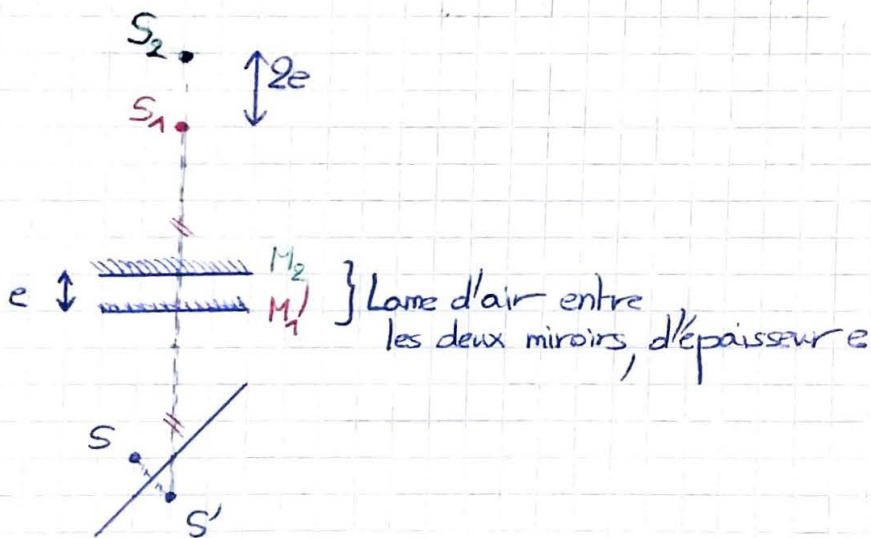 S₂
2e
S₁
M₂
e
M₁'
Lame d'air entre
les deux miroirs, d'épaisseur e
S
S'